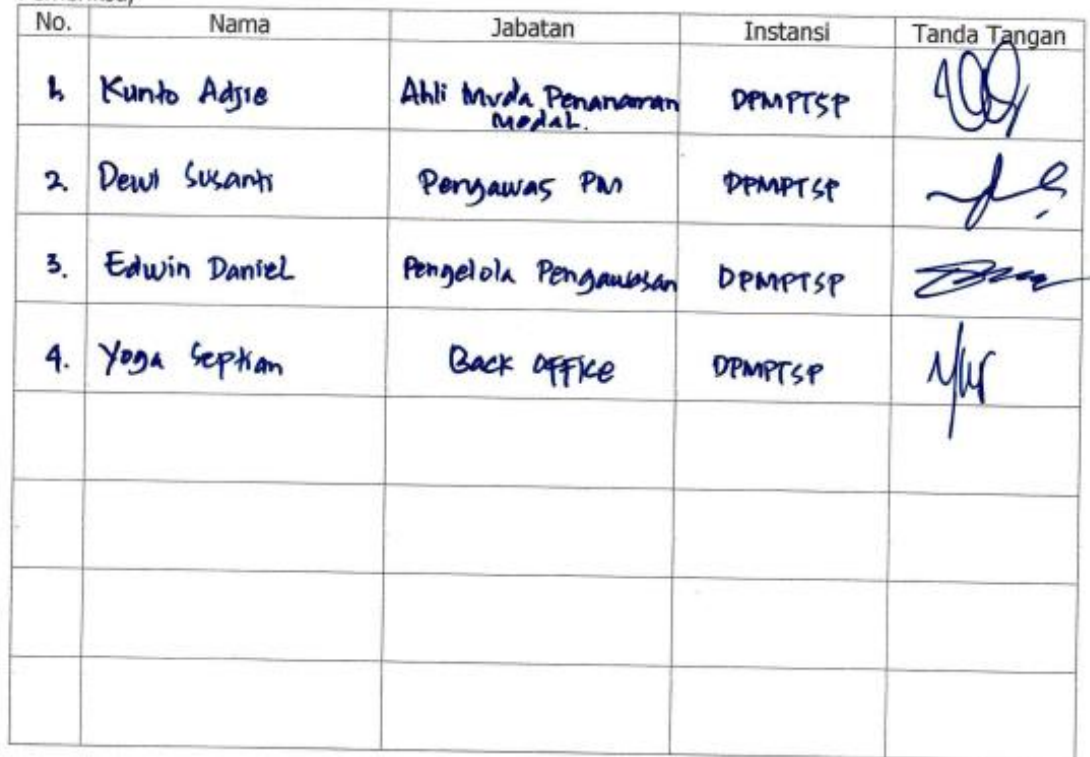 No. Nama Jabatan Instansi Tanda Tangan
1. Kunto Adjie Ahli Muda Penanaman Modal. DPMPTSP
2. Dewi Susanti Pengawas PM DPMPTSP
3. Edwin Daniel Pengelola Pengawasan DPMPTSP
4. Yoga Septian Back Office DPMPTSP